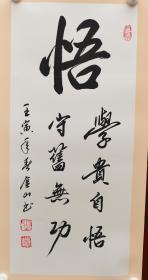 悟
學貴自悟
守舊無功
壬寅年春金山書